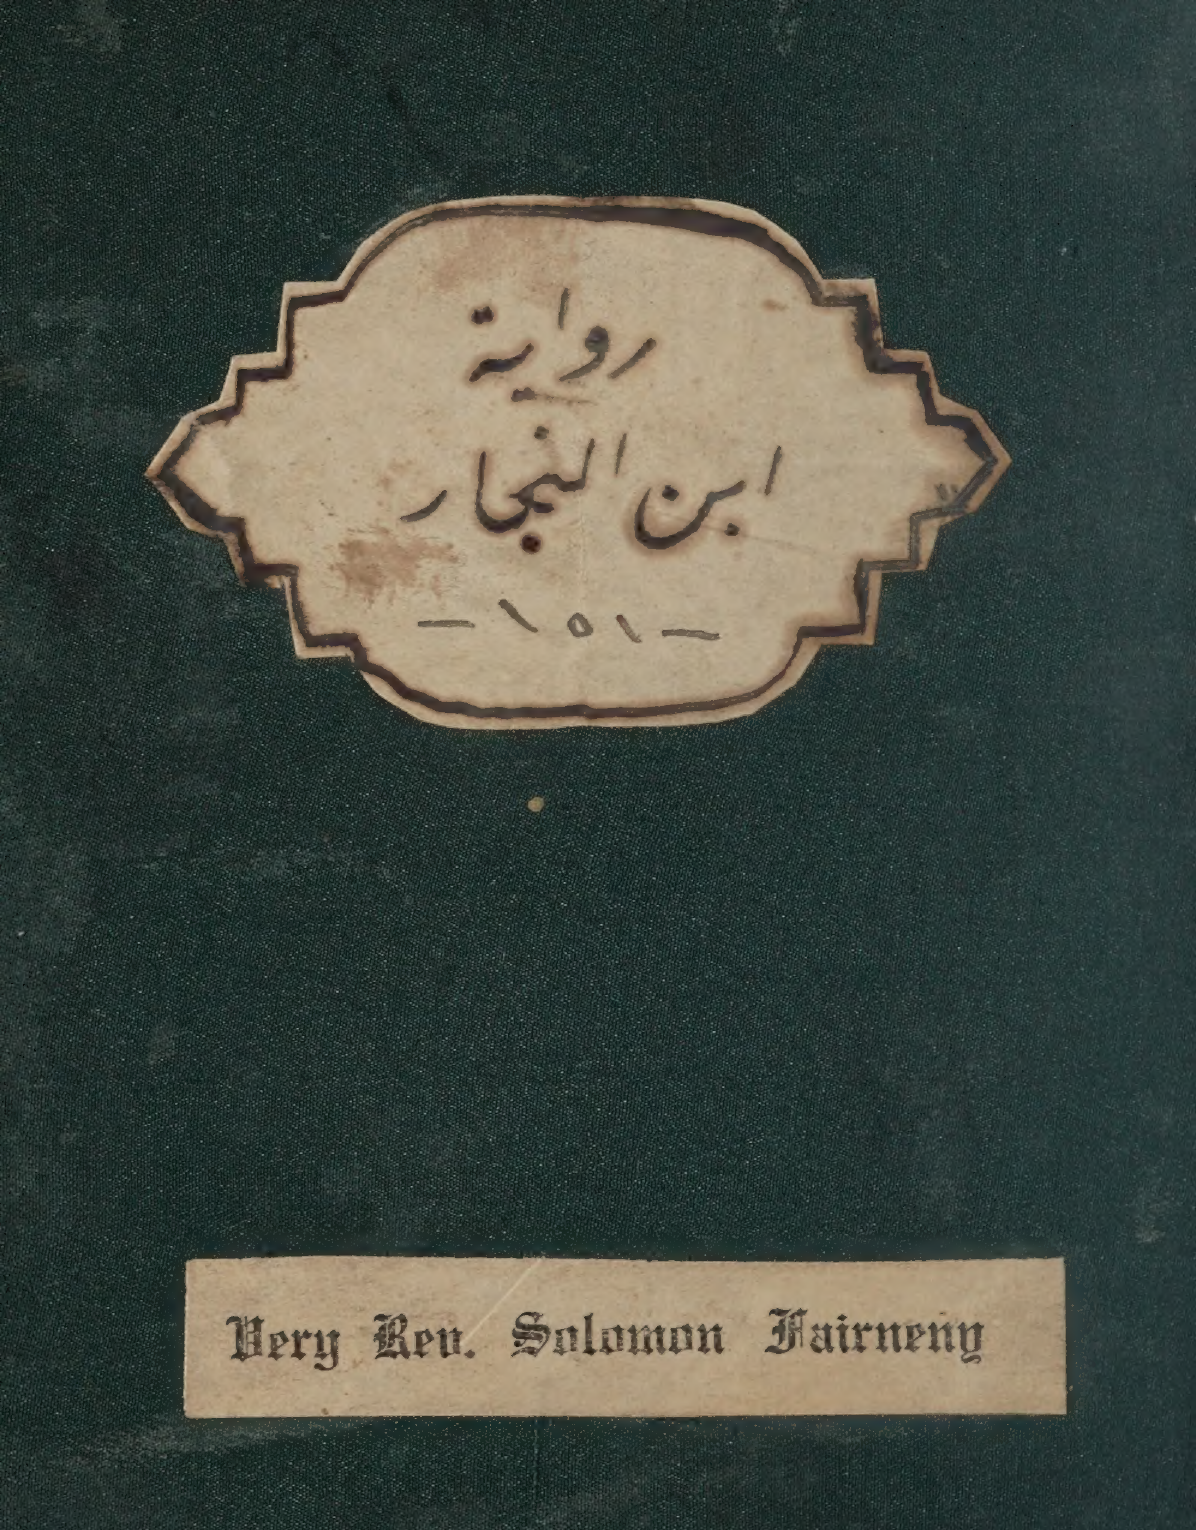 رواية
ابن النجار
-١٥١-
Very Rev. Solomon Fairneny